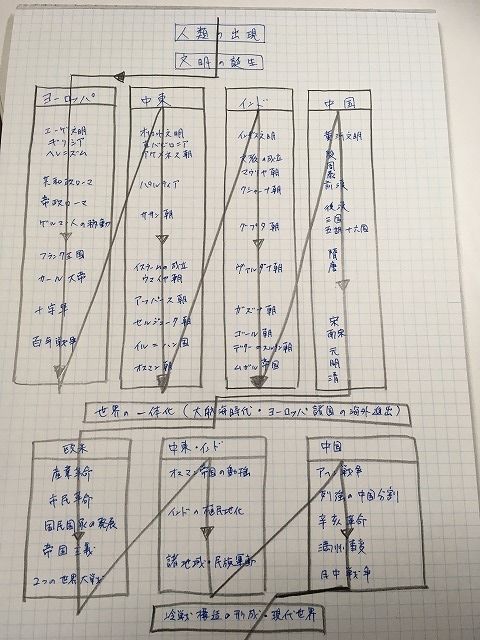 人類の出現
文明の誕生
ヨーロッパ
エーゲ文明
ギリシア
ヘレニズム
共和政ローマ
帝政ローマ
ゲルマン人の移動
フランク王国
カール大帝
十字軍
百年戦争
中東
オリエント文明
アケメネス朝
パルティア
ササン朝
イスラームの成立
ウマイヤ朝
アッバース朝
セルジューク朝
イル=ハン国
オスマン朝
インド
インダス文明
マウリヤ朝
クシャーナ朝
グプタ朝
ヴァルダナ朝
ガズナ朝
ゴール朝
デリー=スルタン朝
ムガル帝国
中国
黄河文明
殷
周
秦
前漢
後漢
三国
五胡十六国
隋
唐
宋
南宋
元
明
清
世界の一体化(大航海時代・ヨーロッパ諸国の海外進出)
欧米
産業革命
市民革命
国民国家の発展
帝国主義
2つの世界大戦
中東・インド
オスマン帝国の動揺
インドの植民地化
諸地域・民族運動
中国
アヘン戦争
列強の中国分割
辛亥革命
満州事変
日中戦争
冷戦構造の形成・現代世界